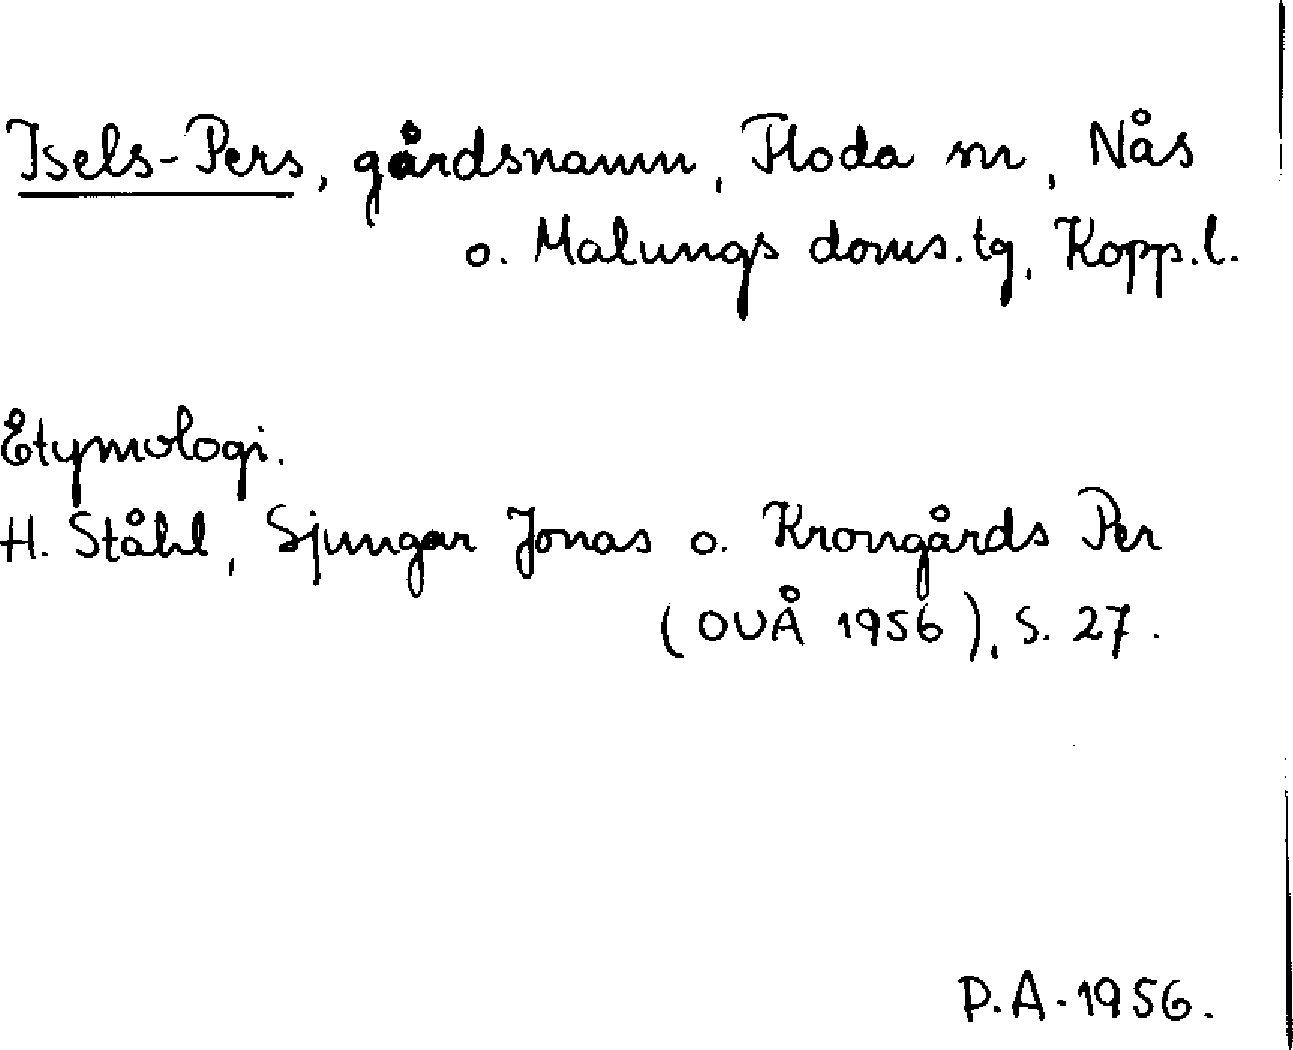 Isels-Pers, gårdsnamn, Floda sn, Nås
o. Malungs doms.tg, Kopp.l.
Etymologi.
H. Ståhl, Sjungar Jonas o. Krongårds Per
(OUÅ 1956), s. 27.
P.A. 1956.